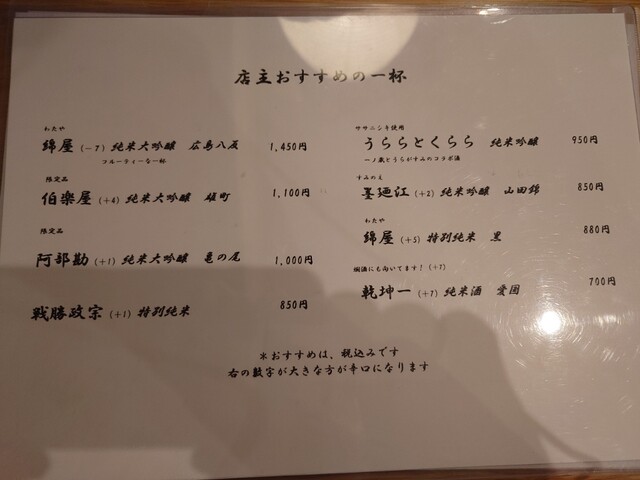 店主おすすめの一杯
わたや
綿屋 (-7) 純米大吟醸 広島八反 1,450円
フルーティーな一杯
限定品
伯楽星 (+4) 純米大吟醸 雄町 1,100円
限定品
阿部勘 (+1) 純米大吟醸 亀の尾 1,000円
戦勝政宗 (+1) 特別純米 850円
ササニシキ使用
うららとくらら 純米吟醸 950円
一ノ蔵とうらがすみのコラボ酒
すみのえ
墨廼江 (+2) 純米吟醸 山田錦 850円
わたや
綿屋 (+5) 特別純米 黒 880円
燗酒にも向いてます! (+7)
乾坤一 (+7) 純米酒 愛国 700円
*おすすめは、税込みです
右の数字が大きな方が辛口になります